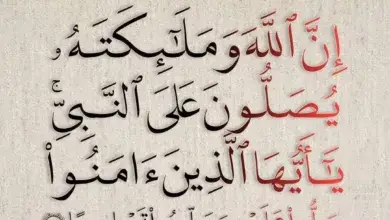 إِنَّ ٱللَّهَ وَمَلَٰٓئِكَتَهُۥ
يُصَلُّونَ عَلَى ٱلنَّبِىِّۚ
يَٰٓأَيُّهَا ٱلَّذِينَ ءَامَنُوا۟